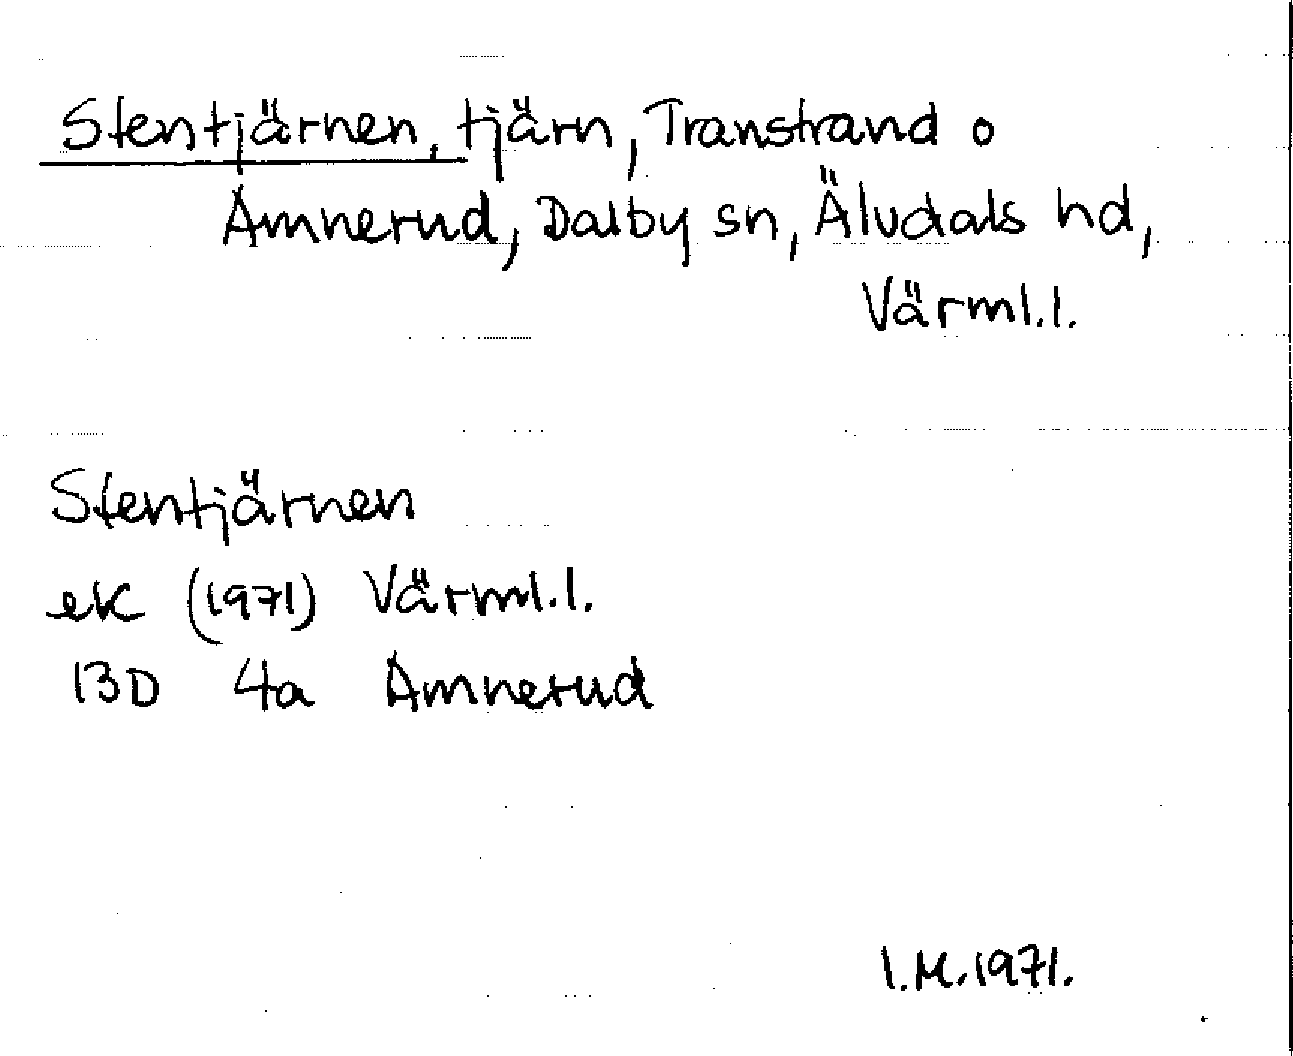 Stentjärnen, tjärn, Transtrand o
Ämnerud, Dalby sn, Älvdals hd,
Värml.l.
Stentjärnen
ek (1971) Värml.l.
13D 4a Ämnerud
I.M.1971.